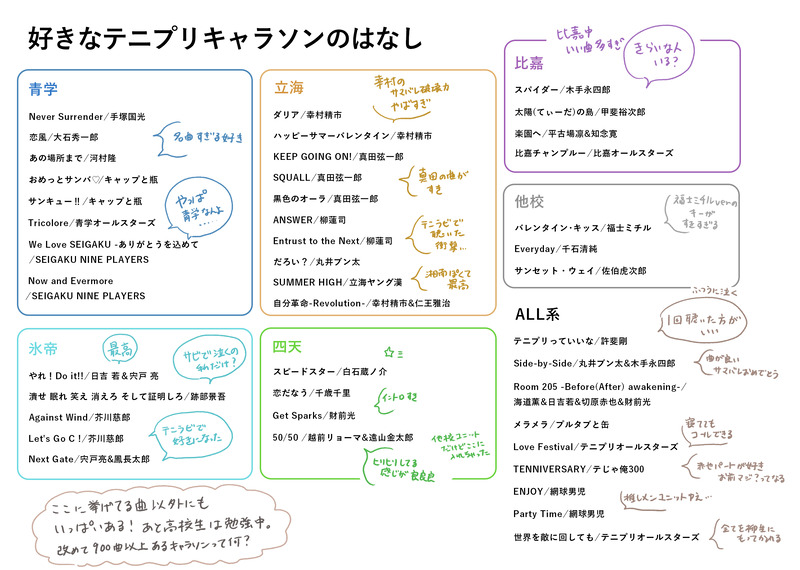 好きなテニプリキャラソンのはなし
青学
Never Surrender/手塚国光
恋風/大石秀一郎
あの場所まで/河村隆
おめっとサンバ♡/キャップと瓶
サンキュー!!/キャップと瓶
Tricolore/青学オールスターズ
We Love SEIGAKU -ありがとうを込めて
/SEIGAKU NINE PLAYERS
Now and Evermore
/SEIGAKU NINE PLAYERS
名曲すぎる好き
やっぱ
青学なんよ
……
立海
ダリア/幸村精市
ハッピーサマーバレンタイン/幸村精市
KEEP GOING ON!/真田弦一郎
SQUALL/真田弦一郎
黒色のオーラ/真田弦一郎
ANSWER/柳蓮司
Entrust to the Next/柳蓮司
だろい?/丸井ブン太
SUMMER HIGH/立海ヤング漢
自分革命-Revolution-/幸村精市&仁王雅治
幸村の
サマバレ破壊力
やばすぎ
真田の曲が
すき
テニラビで
聴いた
衝撃…
湘南ぽくて
最高
比嘉
スパイダー/木手永四郎
太陽(てぃーだ)の島/甲斐裕次郎
楽園へ/平古場凛&知念寛
比嘉チャンプルー/比嘉オールスターズ
比嘉中
いい曲多すぎ
きらいな人
いる?
他校
バレンタイン・キッス/福士ミチル
Everyday/千石清純
サンセット・ウェイ/佐伯虎次郎
福士ミチルverの
キーが
すきすぎる
氷帝
やれ!Do it!!/日吉 若&宍戸 亮
潰せ 眠れ 笑え 消えろ そして証明しろ/跡部景吾
Against Wind/芥川慈郎
Let's Go C !/芥川慈郎
Next Gate/宍戸亮&鳳長太郎
最高
サビで泣くの
私だけ?
テニラビで
好きになった
四天
スピードスター/白石蔵ノ介
恋だなう/千歳千里
Get Sparks/財前光
50/50 /越前リョーマ&遠山金太郎
イントロすき
他校ユニット
だけどここに
入れちゃった
ヒリヒリしてる
感じが良良良
ALL系
テニプリっていいな/許斐剛
Side-by-Side/丸井ブン太&木手永四郎
Room 205 -Before(After) awakening-/
海道薫&日吉若&切原赤也&財前光
メラメラ/プルタブと缶
Love Festival/テニプリオールスターズ
TENNIVERSARY/テじゃ俺300
ENJOY/網球男児
Party Time/網球男児
世界を敵に回しても/テニプリオールスターズ
ふつうに泣く
1回聴いた方が
いい
曲が良い
サマバレおめでとう
寝てても
コールできる
赤也パートが好き
お前マジ?ってなる
推しメンユニットアえ…
全てを柳生に
もってかれる
ここに挙げてる曲以外にも
いっぱいある!あと高校生は勉強中。
改めて900曲以上あるキャラソンって何?